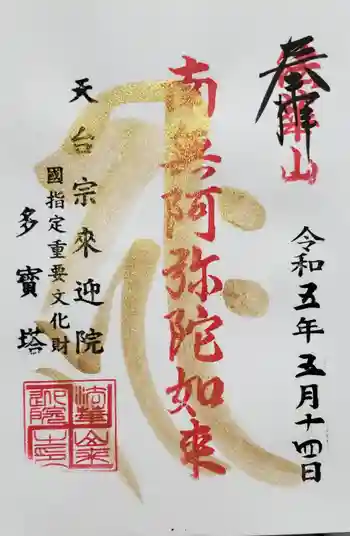 奉拝
法華山
令和五年五月十四日
南無阿弥陀如来
天台宗來迎院
國指定重要文化財
多寶塔